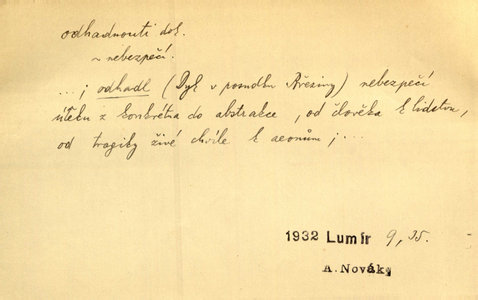 odhadnouti dok.
~ nebezpečí.
...; odhadl (Dyk v posudku Březiny) nebezpečí
útěku z konkrétna do abstrakce, od člověka k lidstvu,
od tragiky živé chvíle k aeonům; ...
1932 Lumír 9, 35.
A. Novák